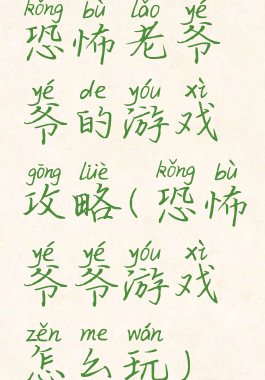 kǒng bù lǎo yé
恐怖老爷
yé de yóu xì
爷的游戏
gōng lüè kǒng bù
攻略(恐怖
yé yé yóu xì
爷爷游戏
zěn me wán
怎么玩)